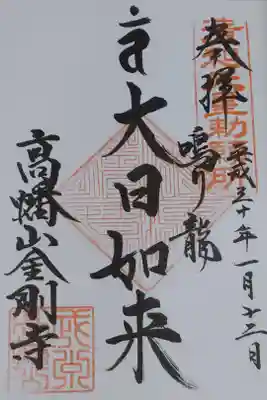 奉拝
平成三十年一月十三日
鳴り龍
大日如来
高幡山金剛寺